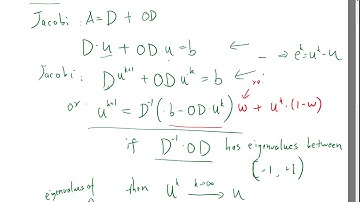 Jacobi: A = D + OD
D·u + OD·u = b ← — ⇒ e^k = u^k - u
Jacobi: D u^{k+1} + OD u^k = b ←
or u^{k+1} = D^{-1}(b - OD·u^k) w + u^k·(1-w)
if D^{-1}·OD has eigenvalues between
[-1, +1]
eigenvalues of then u^k k→∞ u